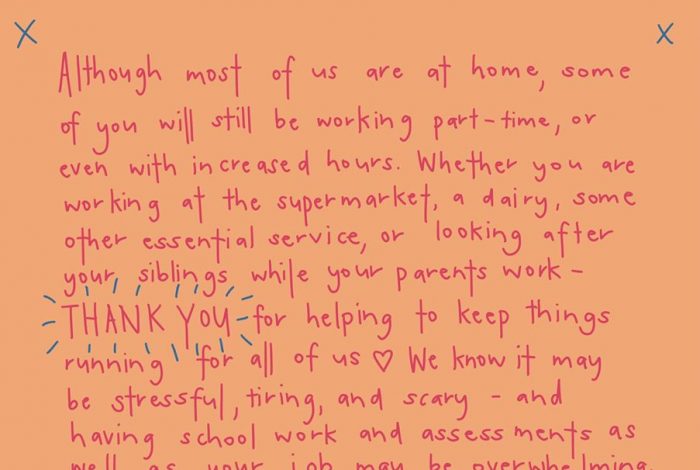 Although most of us are at home, some
of you will still be working part-time, or
even with increased hours. Whether you are
working at the supermarket, a dairy, some
other essential service, or looking after
your siblings while your parents work -
THANK YOU for helping to keep things
running for all of us ♡ We know it may
be stressful, tiring, and scary - and
having school work and assessments as
well as your job may be overwhelming